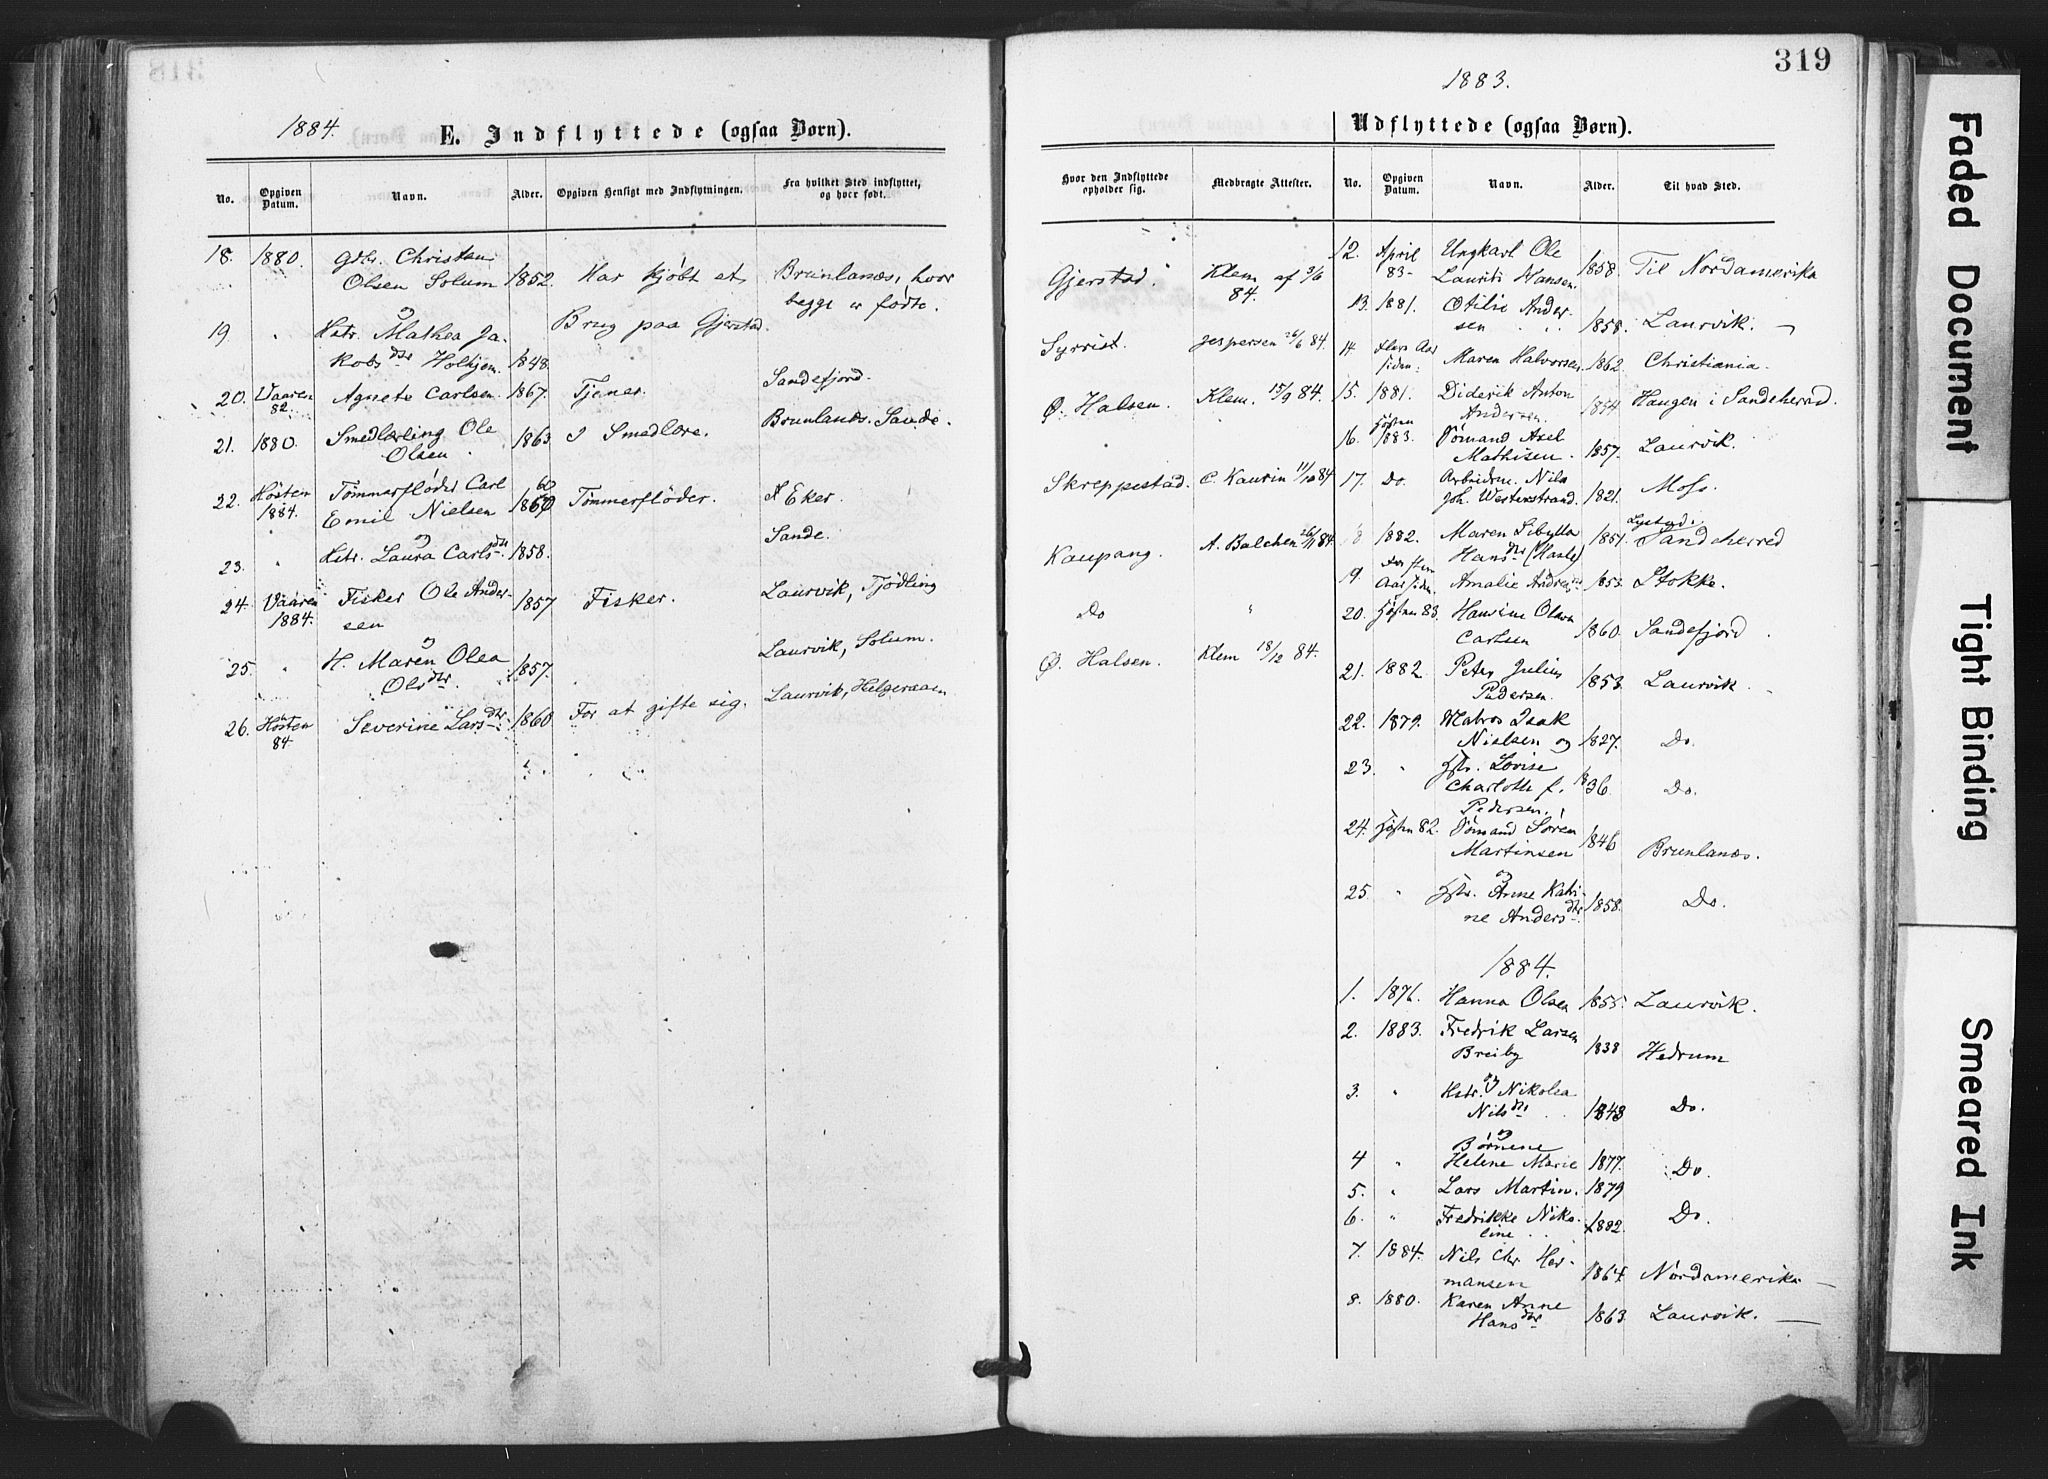 319
1884.
E. Indflyttede (ogsaa Børn).
No. Opgiven Datum. Navn. Alder. Opgiven Hensigt med Indflytningen. Fra hvilket Sted indflyttet, og hvor født.
18. 1880. Gdr. Christen
Olsen Solum 1852. Har kjøbt et Brunlanæs, hvor
begge er fødte.
og
19 " Hstr. Mathea Ja- Brug paa Gjerstad.
kobsdtr Holhjem. 1848.
20. Vaaren 82. Agnete Carlsen. 1867. Tjener. Sandefjord.
21. 1880. Smedlærling Ole 1863 I Smedlære. Brunlanæs. Sande.
Olsen.
22. Høsten 1884. Tømmerfløder Carl
Emil Nielsen 1860 Tømmerfløder. Eker.
og
23. " Hstr. Laura Carlsdtr. 1858. Sande.
24. Vaaren 1884. Fisker Ole Ander- 1857 Fisker. Laurvik, Tjødling
sen
og
25. " H. Maren Olea 1857. Laurvik, Solum.
Olsdtr.
26. Høsten 84. Severine Larsdtr. 1860 For at gifte sig. Laurvik, Helgeraaen
Hvor den Indflyttede opholder sig. Medbragte Attester.
Gjerstad. Klem af 3/6 84.
Syrrist. Jespersen 26/6 84.
Ø. Halsen. Klem. 15/9 84.
Skreppestad. C. Kaurin 11/10 84
Kaupang. A. Balchen 26/11 84
Do "
Ø. Halsen. Klem 18/12 84.
1883.
Udflyttede (ogsaa Børn).
No. Opgiven Datum. Navn. Alder. Til hvad Sted.
12. April 83- Ungkarl Ole
Lauritz Hansen. 1858. Til Nordamerika
13. 1881. Otilie Ander-
sen 1858. Laurvik.
14 flere Aar siden. Maren Halvorsen 1862. Christiania.
15. 1881. Diderik Anton
Andersen. 1854 Haugen i Sandeherred.
16. Høsten 1883. Sømand Axel
Mathisen. 1857. Laurvik.
17. Do. Arbeidsm. Nils
Joh. Westerstrand. 1821. Moss.
18 1882. Maren Sibylla
Hansdtr (Hasle) 1851. Lystad i Sandeherred
19. Aar siden. Amalie Andrea 1853. Stokke.
20. Høsten 83. Hansine Olava
Carlsen 1860. Sandefjord.
21. 1882. Peter Julius
Pedersen. 1853. Laurvik.
22. 1879. Matros Isak
Nielsen og 1827. Do.
23. " Hstr. Lovise
Charlotte f. 1836. Do.
Pedersen.
24. Høsten 82. Sømand Søren
Martinsen 1846 Brunlanæs.
og
25. " Hstr. Anne Katri-
ne Andersdtr. 1858. Do.
1884.
1. 1876. Hanna Olsen 1855. Laurvik.
2. 1883. Fredrik Larsen
Breiby 1838 Hedrum
og
3. " Hstr. Nikolea
Nilsdtr 1843 Do.
og
Børnene
4 " Helene Marie 1877. Do.
5. " Lars Martin. 1879
6. " Fredrikke Niko-
line 1882. Do.
7. 1884. Nils Chr Her-
mansen 1864. Nordamerika
8. 1880. Karen Anne
Hansdtr 1863. Laurvik.
Faded Document
Tight Binding
Smeared Ink